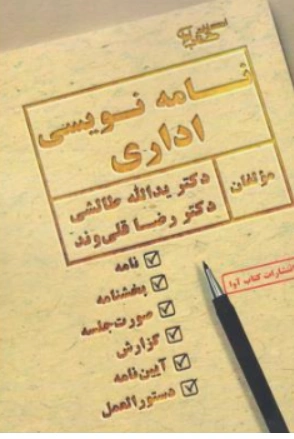 نامه نویسی
اداری
مؤلفان
دکتر یدالله طالشی
دکتر رضا قلی‌وند
نامه
بخشنامه
صورت‌جلسه
گزارش
آیین‌نامه
دستورالعمل
انتشارات کتاب آوا